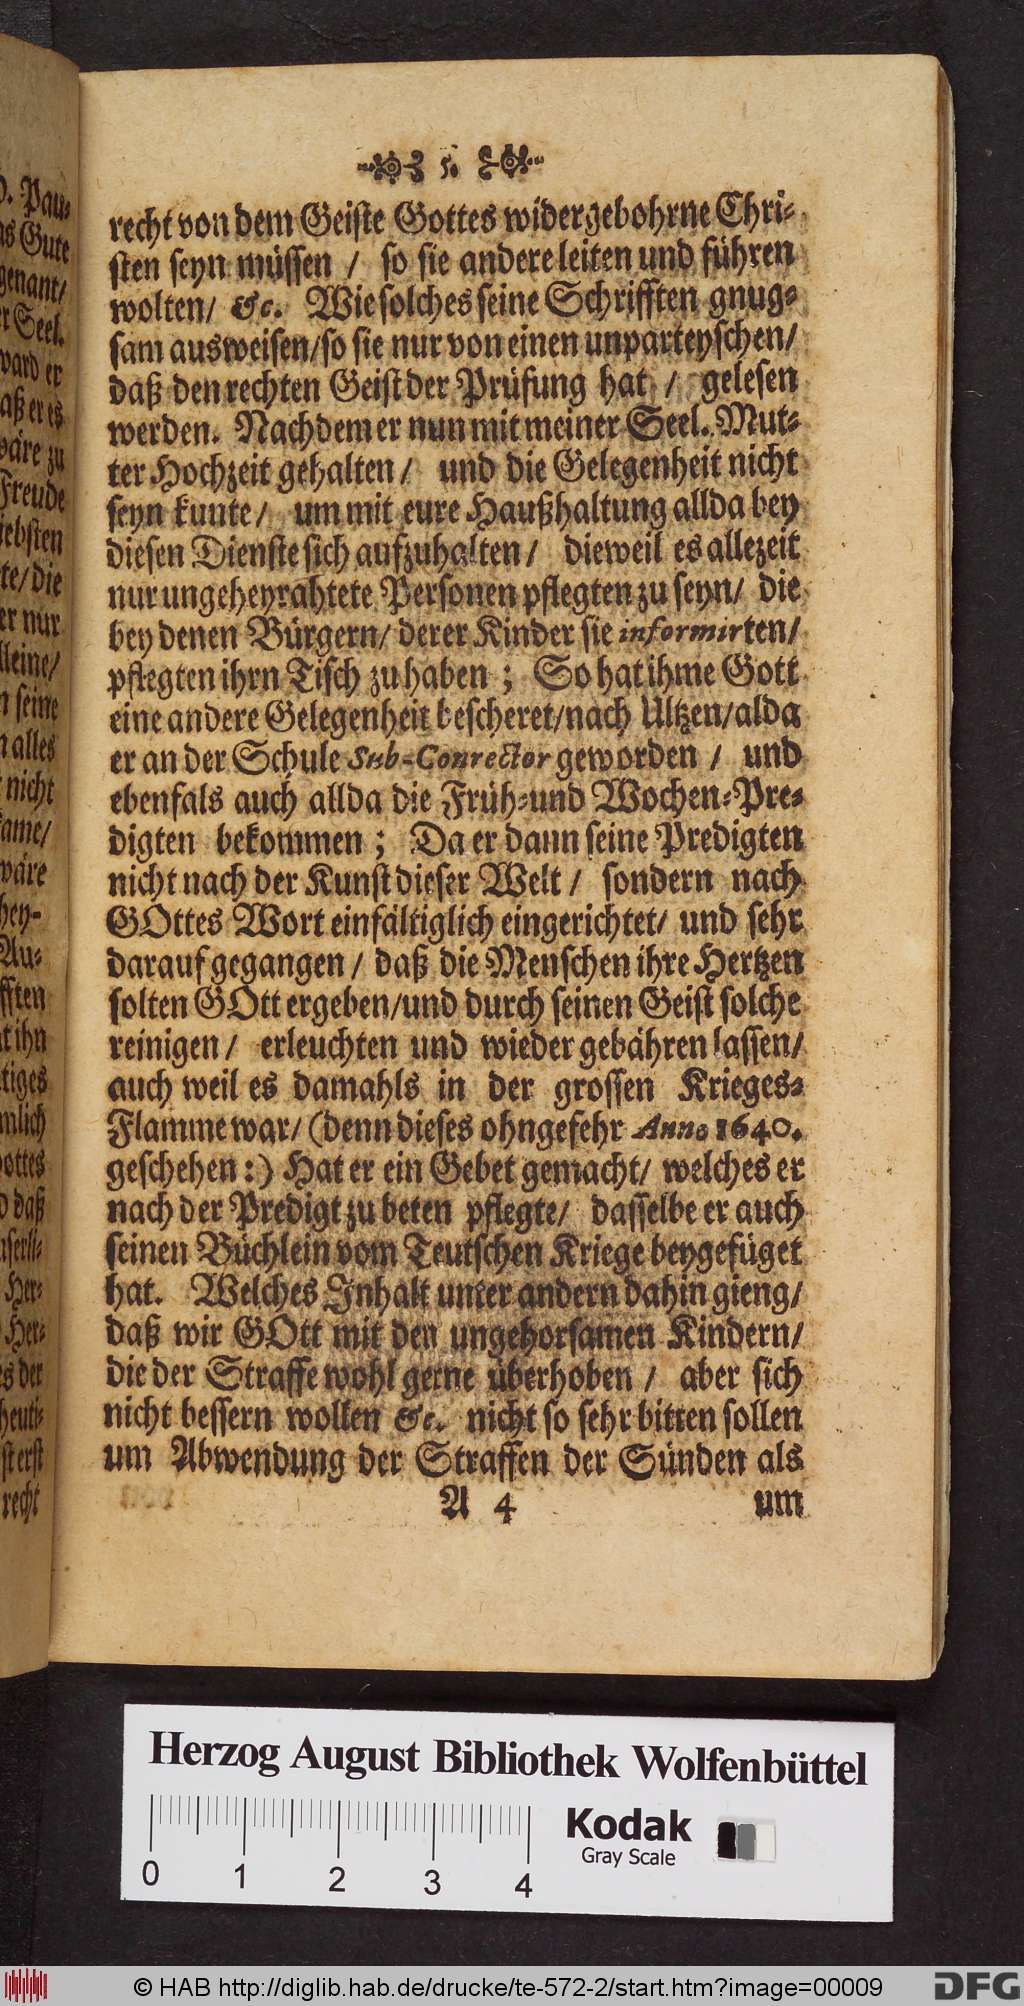 5.
recht von dem Geiste Gottes widergebohrne Chri-
sten seyn müssen / so sie andere leiten und führen
wolten/ &c. Wie solches seine Schrifften gnug-
sam ausweisen/so sie nur von einen unparteyschen/
daß den rechten Geist der Prüfung hat / gelesen
werden. Nachdem er nun mit meiner Seel. Mut-
ter Hochzeit gehalten / und die Gelegenheit nicht
seyn kunte / um mit eure Haußhaltung allda bey
diesen Dienste sich aufzuhalten / dieweil es allezeit
nur ungeheyrahtete Personen pflegten zu seyn/ die
bey denen Bürgern/ derer Kinder sie informirten/
pflegten ihrn Tisch zu haben ; So hat ihme Gott
eine andere Gelegenheit bescheret/nach Ultzen/alda
er an der Schule Sub-Conrector geworden / und
ebenfals auch allda die Früh-und Wochen-Pre-
digten bekommen ; Da er dann seine Predigten
nicht nach der Kunst dieser Welt / sondern nach
GOttes Wort einfältiglich eingerichtet/ und sehr
darauf gegangen / daß die Menschen ihre Hertzen
solten GOtt ergeben/und durch seinen Geist solche
reinigen / erleuchten und wieder gebähren lassen/
auch weil es damahls in der grossen Krieges-
Flamme war/ (denn dieses ohngefehr Anno 1640.
geschehen:) Hat er ein Gebet gemacht/ welches er
nach der Predigt zu beten pflegte/ dasselbe er auch
seinen Büchlein vom Teutschen Kriege beygefüget
hat. Welches Inhalt unter andern dahin gieng/
daß wir GOtt mit den ungehorsamen Kindern/
die der Straffe wohl gerne überhoben / aber sich
nicht bessern wollen &c. nicht so sehr bitten sollen
um Abwendung der Straffen der Sünden als
A 4 um
D. Pau-
as Gute
genant/
r Seel.
ward er
aß er es
wäre zu
Freude
iebsten
te/ die
er nur
lleine/
n seine
n alles
nicht
kame/
wäre
hey-
Au-
fften
t ihn
tiges
mlich
ottes
d daß
userli-
Her-
Her-
es der
heuti-
st erst
recht
Herzog August Bibliothek Wolfenbüttel
0 1 2 3 4
Kodak
Gray Scale
© HAB http://diglib.hab.de/drucke/te-572-2/start.htm?image=00009
DFG